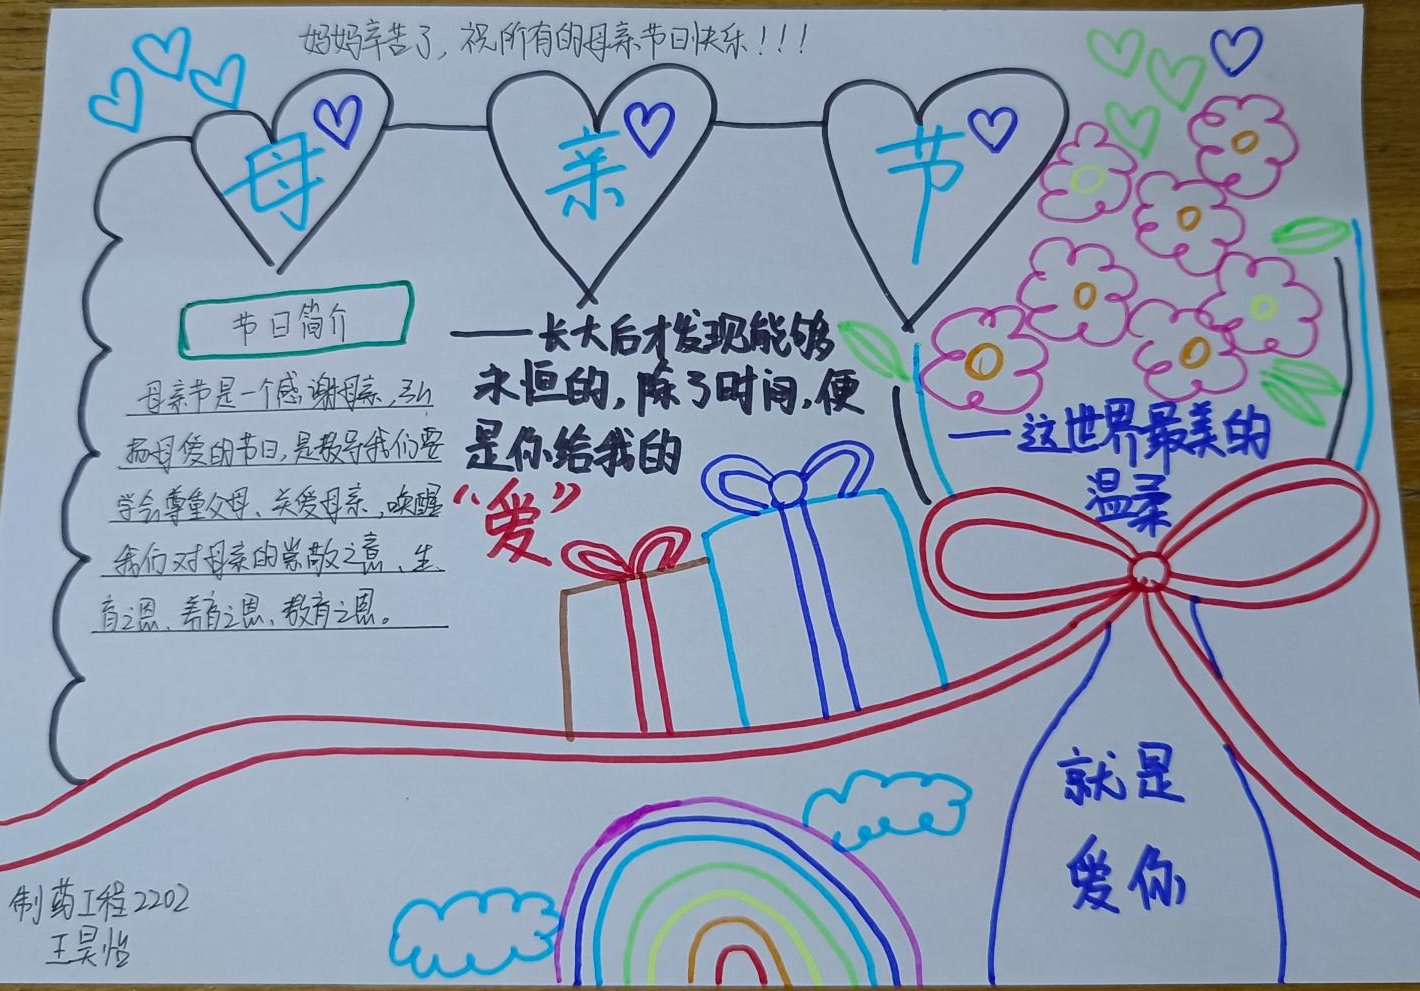 妈妈辛苦了，祝所有的母亲节日快乐！！！
母 亲 节
节日简介
母亲节是一个感谢母亲，弘
扬母爱的节日，是教导我们要
学会尊重父母、关爱母亲，唤醒
我们对母亲的崇敬之意、生
育之恩、养育之恩、教育之恩。
——长大后才发现能够
永恒的，除了时间，便
是你给我的
“爱”
—这世界最美的
温柔
就是
爱你
制药工程2202
王昊怡